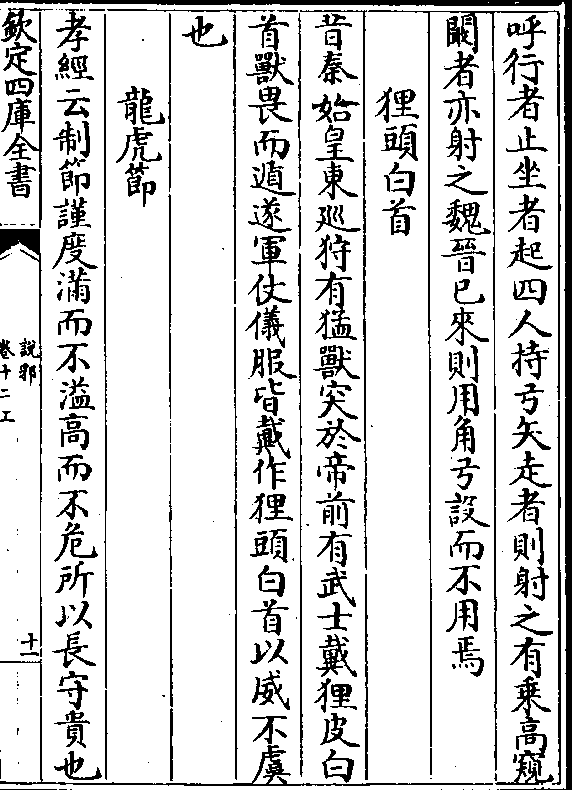 呼行者止坐者起四人持弓矢走者則射之有乗高窺
闞者亦射之魏晉已來則用角弓設而不用焉
狸頭白首
昔秦始皇東巡狩有猛獸突於帝前有武士戴狸皮白
首獸畏而遁遂軍仗儀服皆戴作狸頭白首以威不虞
也
龍虎節
孝經云制節謹度滿而不溢高而不危所以長守貴也
欽定四庫全書
說郛
卷十二上
十一